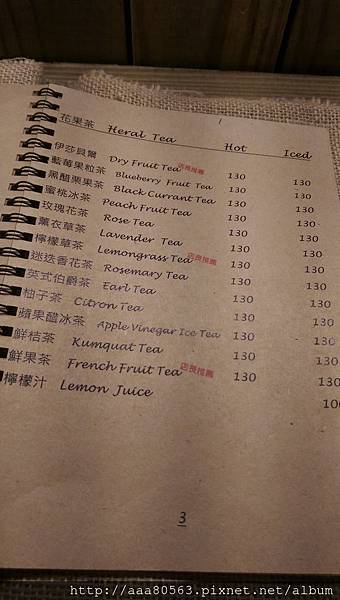 花果茶 Heral Tea Hot Iced
伊莎貝爾 Dry Fruit Tea 店長推薦 130 130
藍莓果粒茶 Blueberry Fruit Tea 130 130
黑醋栗果茶 Black Currant Tea 130 130
蜜桃冰茶 Peach Fruit Tea 130
玫瑰花茶 Rose Tea 130 130
薰衣草茶 Lavender Tea 130 130
檸檬草茶 Lemongrass Tea 店長推薦 130 130
迷迭香花茶 Rosemary Tea 130 130
英式伯爵茶 Earl Tea 130 130
柚子茶 Citron Tea 130 130
蘋果醋冰茶 Apple Vinegar Ice Tea 130
鮮桔茶 Kumquat Tea 130 130
鮮果茶 French Fruit Tea 店長推薦 130 130
檸檬汁 Lemon Juice
3
http://aaa80563.pixnet.net/album